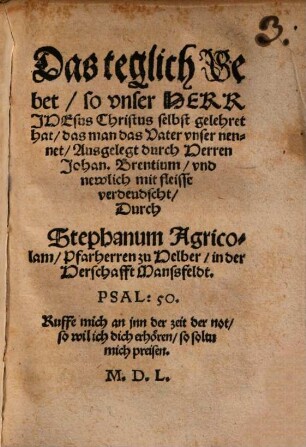 3.
Das teglich Ge
bet / so vnser HERR
JHEsus Christus selbst gelehret
hat / das man das Vater vnser nen-
net / Ausgelegt durch Herren
Johan. Brentium / vnd
newlich mit fleisse
verdeudscht /
Durch
Stephanum Agrico-
lam / Pfarherren zu Helber / in der
Herschafft Mansfeldt.
PSAL: 50.
Ruffe mich an jnn der zeit der not /
so wil ich dich erhören / so soltu
mich preisen.
M. D. L.